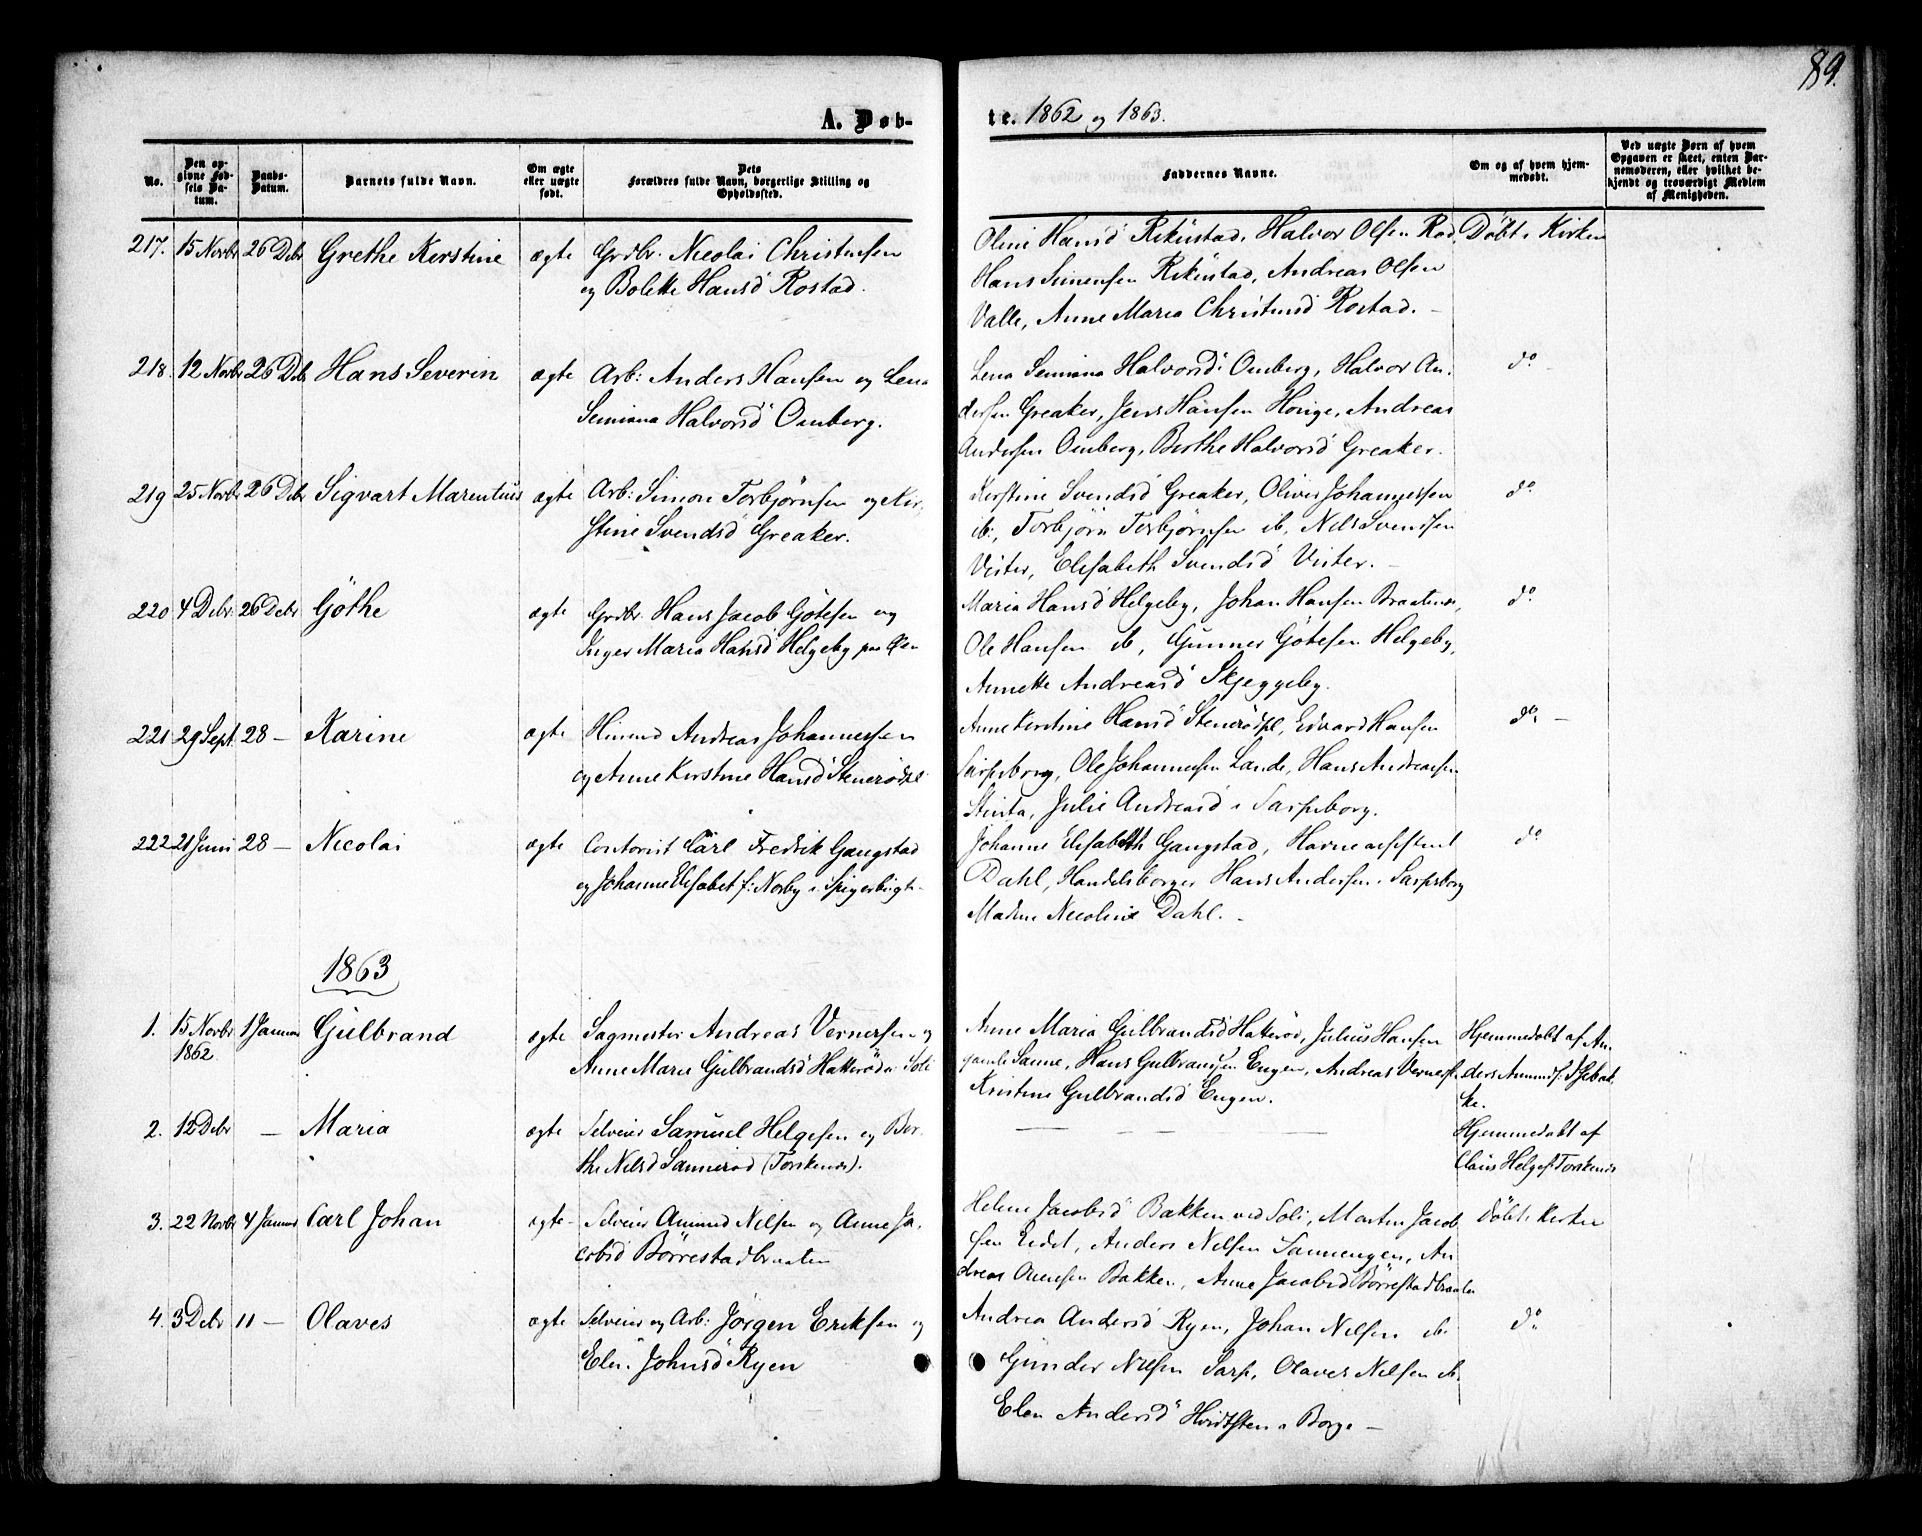 89.
A. Døb-
te. 1862 og 1863.
No.
Den op-
givne Fød-
sels Da-
tum.
Daabs-
Datum.
Barnets fulde Navn.
Om ægte
eller uægte
født.
Dets
Forældres fulde Navn, borgerlige Stilling og
Opholdssted.
Faddernes Navne.
Om og af hvem hjem-
medøbt.
Ved uægte Børn af hvem
Opgaven er skeet, enten Bar-
nemoderen, eller hvilket be-
kjendt og troværdigt Medlem
af Menigheden.
217. 15 Novbr 26 Debr Grethe Kerstine ægte Grdbr. Nicolai Christensen
og Bolette Hansd Rostad.
Oline Hansd Rikustad, Halvor Olsen Rod, Døbt i Kirken
Hans Simensen Rikustad, Andreas Olsen
Valle, Anne Maria Christensd Rostad. —
218. 12 Novbr 26 Debr Hans Severin ægte Arb: Anders Hansen og Lena
Semiana Halvorsd Omberg.
Lena Semiana Halvorsd Omberg, Halvor An-
dersen Greaker, Jens Hansen Honige, Andreas
Andersen Omberg, Berthe Halvorsd Greaker.
do —
219 25 Novbr 26 Debr Sigvart Marentius ægte Arb: Simon Torbjørnsen og Ker-
stine Svendsd Greaker.
Kerstine Svendsd Greaker, Oliver Johannessen
ib:, Torbjørn Torbjørnsen ib, Nils Svendsen
Vister, Elisabeth Svendsd Vister. —
do
220 4 Debr. 26 Debr Göthe ægte Grdbr. Hans Jacob Götesen og
Inger Maria Hansd Helgeby paa
Maria Hansd Helgeby, Johan Hansen Braatene,
Ole Hansen ib, Gunner Götesen Helgeby,
Annette Andreasd Skjeggeby.
do
221 29 Sept 28 — Karine ægte Andreas Johannessen
og Anne Kerstine Hansd Stenrødpl.
Anne Kerstine Hansd Stenerødpl, Edvard Hansen
Sarpsborg, Ole Johannesen Lande, Hans Andreassen
Stinta, Julie Andreasd i Sarpsborg.
do —
222 21 Juni 28 — Nicolai ægte Contorist Carl Fredrik Gangstad
og Johanne Elisabet f: Norby i Spigerbugt.
Johanne Elisabeth Gangstad, Havneassistent
Dahl, Handelsborger Hans Andersen i Sarpsborg
Madme Nicoline Dahl. —
do
1863
1. 15 Novbr 1 Januar Gulbrand ægte Sagmester Andreas Vernersen og
1862. Anne Marie Gulbrandsd Hatterød Soli
Anne Maria Gulbrandsd Hatterød, Julius Hansen
gamle Sanne, Hans Gulbransen Engen, Andreas Vernersen
Kristine Gulbrandsd Engen.
Hjemmedøbt af An-
ders Amunds:
ke.
2. 12 Debr — Maria ægte Selveier Samuel Helgesen og Ber-
the Nilsd Sannerød (Torskenes).
— — —
Hjemmedøbt af
Claus Helges: Torskenes
3. 22 Novbr 4 Januar Carl Johan ægte Selveier Amund Nilsen og Anne Ja-
cobsd Börrestadbraaten
Helene Jacobsd Bakken ved Soli, Martin Jacob-
sen Eidet, Anders Nilsen Sannengen, An-
dreas Bakken, Anne Jacobsd Börrestadbraaten
Døbt i Kirken
4. 3 Debr 11 — Olaves ægte Selveier og Arb: Jörgen Eriksen og
Elen Johnsd Ryen
Andrea Andersd Ryen, Johan Nilsen ib.
Gunder Nilsen Sarp, Olaves Nilsen ib.
Elen Andersd Hvidtsten i Borge —
do